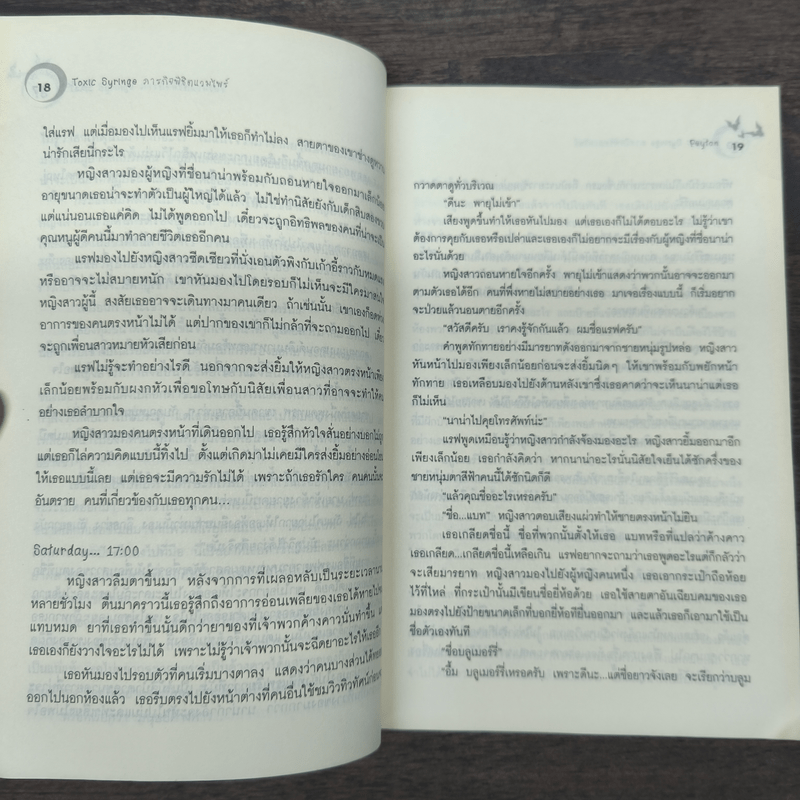 18
Toxic Syringe ภารกิจพิชิตแวมไพร์
ใส่แรฟ แต่เมื่อมองไปเห็นแรฟยิ้มมาให้เธอก็ทำไม่ลง สายตาของเขาช่างดู
น่ารักเสียนี่กระไร
หญิงสาวมองผู้หญิงที่ชื่อนาน่าพร้อมกับถอนหายใจออกมาเล็กน้อย
อายุขนาดเธอน่าจะทำตัวเป็นผู้ใหญ่ได้แล้ว ไม่ใช่ทำนิสัยยังกับเด็กสิบสอง
แต่แน่นอนเธอแค่คิด ไม่ได้พูดออกไป เดี๋ยวจะถูกอิทธิพลของคนที่น่าจะเป็น
คุณหนูผู้ดีคนนี้มาทำลายชีวิตเธออีกคน
แรฟมองไปยังหญิงสาวซีดเซียวที่นั่งเอนตัวพิงกับเก้าอี้ราวกับหมดแรง
หรืออาจจะไม่สบายหนัก เขาหันมองไปโดยรอบก็ไม่เห็นจะมีใครมา
หญิงสาวผู้นี้ สงสัยเธออาจจะเดินทางมาคนเดียว ถ้าเช่นนั้น เขาเองก็
อาการของคนตรงหน้าไม่ได้ แต่ปากของเขาก็ไม่กล้าที่จะถามออกไป เดี๋ยว
จะถูกเพื่อนสาวหมายหัวเสียก่อน
แรฟไม่รู้จะทำอย่างไรดี นอกจากจะส่งยิ้มให้หญิงสาวตรงหน้าเพียง
เล็กน้อยพร้อมกับผงกหัวเพื่อขอโทษกับนิสัยเพื่อนสาวที่อาจจะทำให้คน
อย่างเธอลำบากใจ
หญิงสาวมองคนตรงหน้าที่เดินออกไป เธอรู้สึกหัวใจสั่นอย่างบอกไม่ถูก
แต่เธอก็ไล่ความคิดแบบนี้ทิ้งไป ตั้งแต่เกิดมาไม่เคยมีใครส่งยิ้มอย่างอ่อนโยน
ให้เธอแบบนี้เลย แต่เธอจะมีความรักไม่ได้ เพราะถ้าเธอรักใคร คนคนนั้นจะ
อันตราย คนที่เกี่ยวข้องกับเธอทุกคน...
Saturday... 17:00
หญิงสาวลืมตาขึ้นมา หลังจากการที่เผลอหลับเป็นระยะเวลานาน
หลายชั่วโมง ตื่นมาคราวนี้เธอรู้สึกถึงอาการอ่อนเพลียของเธอได้หายไป
แทบหมด ยาที่เธอทำขึ้นนั้นดีกว่ายาของที่เจ้าพวกค้างคาวนั่นทำขึ้น
เธอเองก็ยังวางใจอะไรไม่ได้ เพราะไม่รู้ว่าเจ้าพวกนั้นจะฉีดยาอะไรให้เธออีก
เธอหันมองไปรอบตัวที่คนเริ่มบางตาลง แสดงว่าคนบางส่วนได้
ออกไปนอกห้องแล้ว เธอรีบตรงไปยังหน้าต่างที่คนอื่นใช้ชมวิวทิวทัศน์
19
กวาดตาดูทั่วบริเวณ
“ดีนะ พายุไม่เข้า”
เสียงพูดขึ้นทำให้เธอหันไปมอง แต่เธอเองก็ไม่ได้ตอบอะไร ไม่รู้ว่าเขา
ต้องการคุยกับเธอหรือเปล่าและเธอเองก็ไม่อยากจะมีเรื่องกับผู้หญิงที่ชื่อนาน่า
อะไรนั่นด้วย
หญิงสาวถอนหายใจอีกครั้ง พายุไม่เข้าแสดงว่าพวกนั้นอาจจะออกมา
ตามตัวเธอได้อีก คนที่พึ่งหายไม่สบายอย่างเธอ มาเจอเรื่องแบบนี้ ก็เริ่มอยาก
จะป่วยแล้วนอนตายอีกครั้ง
“สวัสดีครับ เราคงรู้จักกันแล้ว ผมชื่อแรฟครับ”
คำพูดทักทายอย่างมีมารยาทดังออกมาจากชายหนุ่มรูปหล่อ หญิงสาว
หันหน้าไปมองเพียงเล็กน้อยก่อนจะส่งยิ้มนิดๆ ให้เขาพร้อมกับพยักหน้า
ทักทาย เธอเหลือบมองไปยังด้านหลังเขาซึ่งเธอคาดว่าจะเห็นนาน่าแต่เธอ
ก็ไม่เห็น
“นาน่าไปคุยโทรศัพท์น่ะ”
แรฟพูดเหมือนรู้ว่าหญิงสาวกำลังจ้องมองอะไร หญิงสาวยิ้มออกมาอีก
เพียงเล็กน้อย เธอกำลังคิดว่า หากนาน่าอะไรนั่นนิสัยใจเย็นได้ซักครึ่งของ
ชายหนุ่มตาสีฟ้าคนนี้ได้ซักนิดก็ดี
“แล้วคุณชื่ออะไรเหรอครับ”
“ชื่อ...แบท” หญิงสาวตอบเสียงแผ่วทำให้ชายตรงหน้าไม่ยิน
เธอเกลียดชื่อนี้ ชื่อที่พวกนั้นตั้งให้เธอ แบทหรือที่แปลว่าค้างคาว
เธอเกลียด...เกลียดชื่อนี้เหลือเกิน แรฟอยากจะถามว่าเธอพูดอะไรแต่ก็กลัวว่า
จะเสียมารยาท หญิงสาวมองไปยังผู้หญิงคนหนึ่ง เธอเอากระเป๋าถือห้อย
ไว้ที่ไหล่ ที่กระเป๋านั้นมีเขียนชื่อยี่ห้อด้วย เธอใช้สายตาอันเฉียบคมของเธอ
มองตรงไปยังป้ายขนาดเล็กที่บอกยี่ห้อที่ยื่นออกมา และแล้วเธอก็เอามาใช้เป็น
ชื่อตัวเองทันที
“ชื่อบลูเมอร์รี่”
“อื้ม บลูเมอร์รี่เหรอครับ เพราะดีนะ...แต่ชื่อยาวจังเลย จะเรียกว่าบลูม